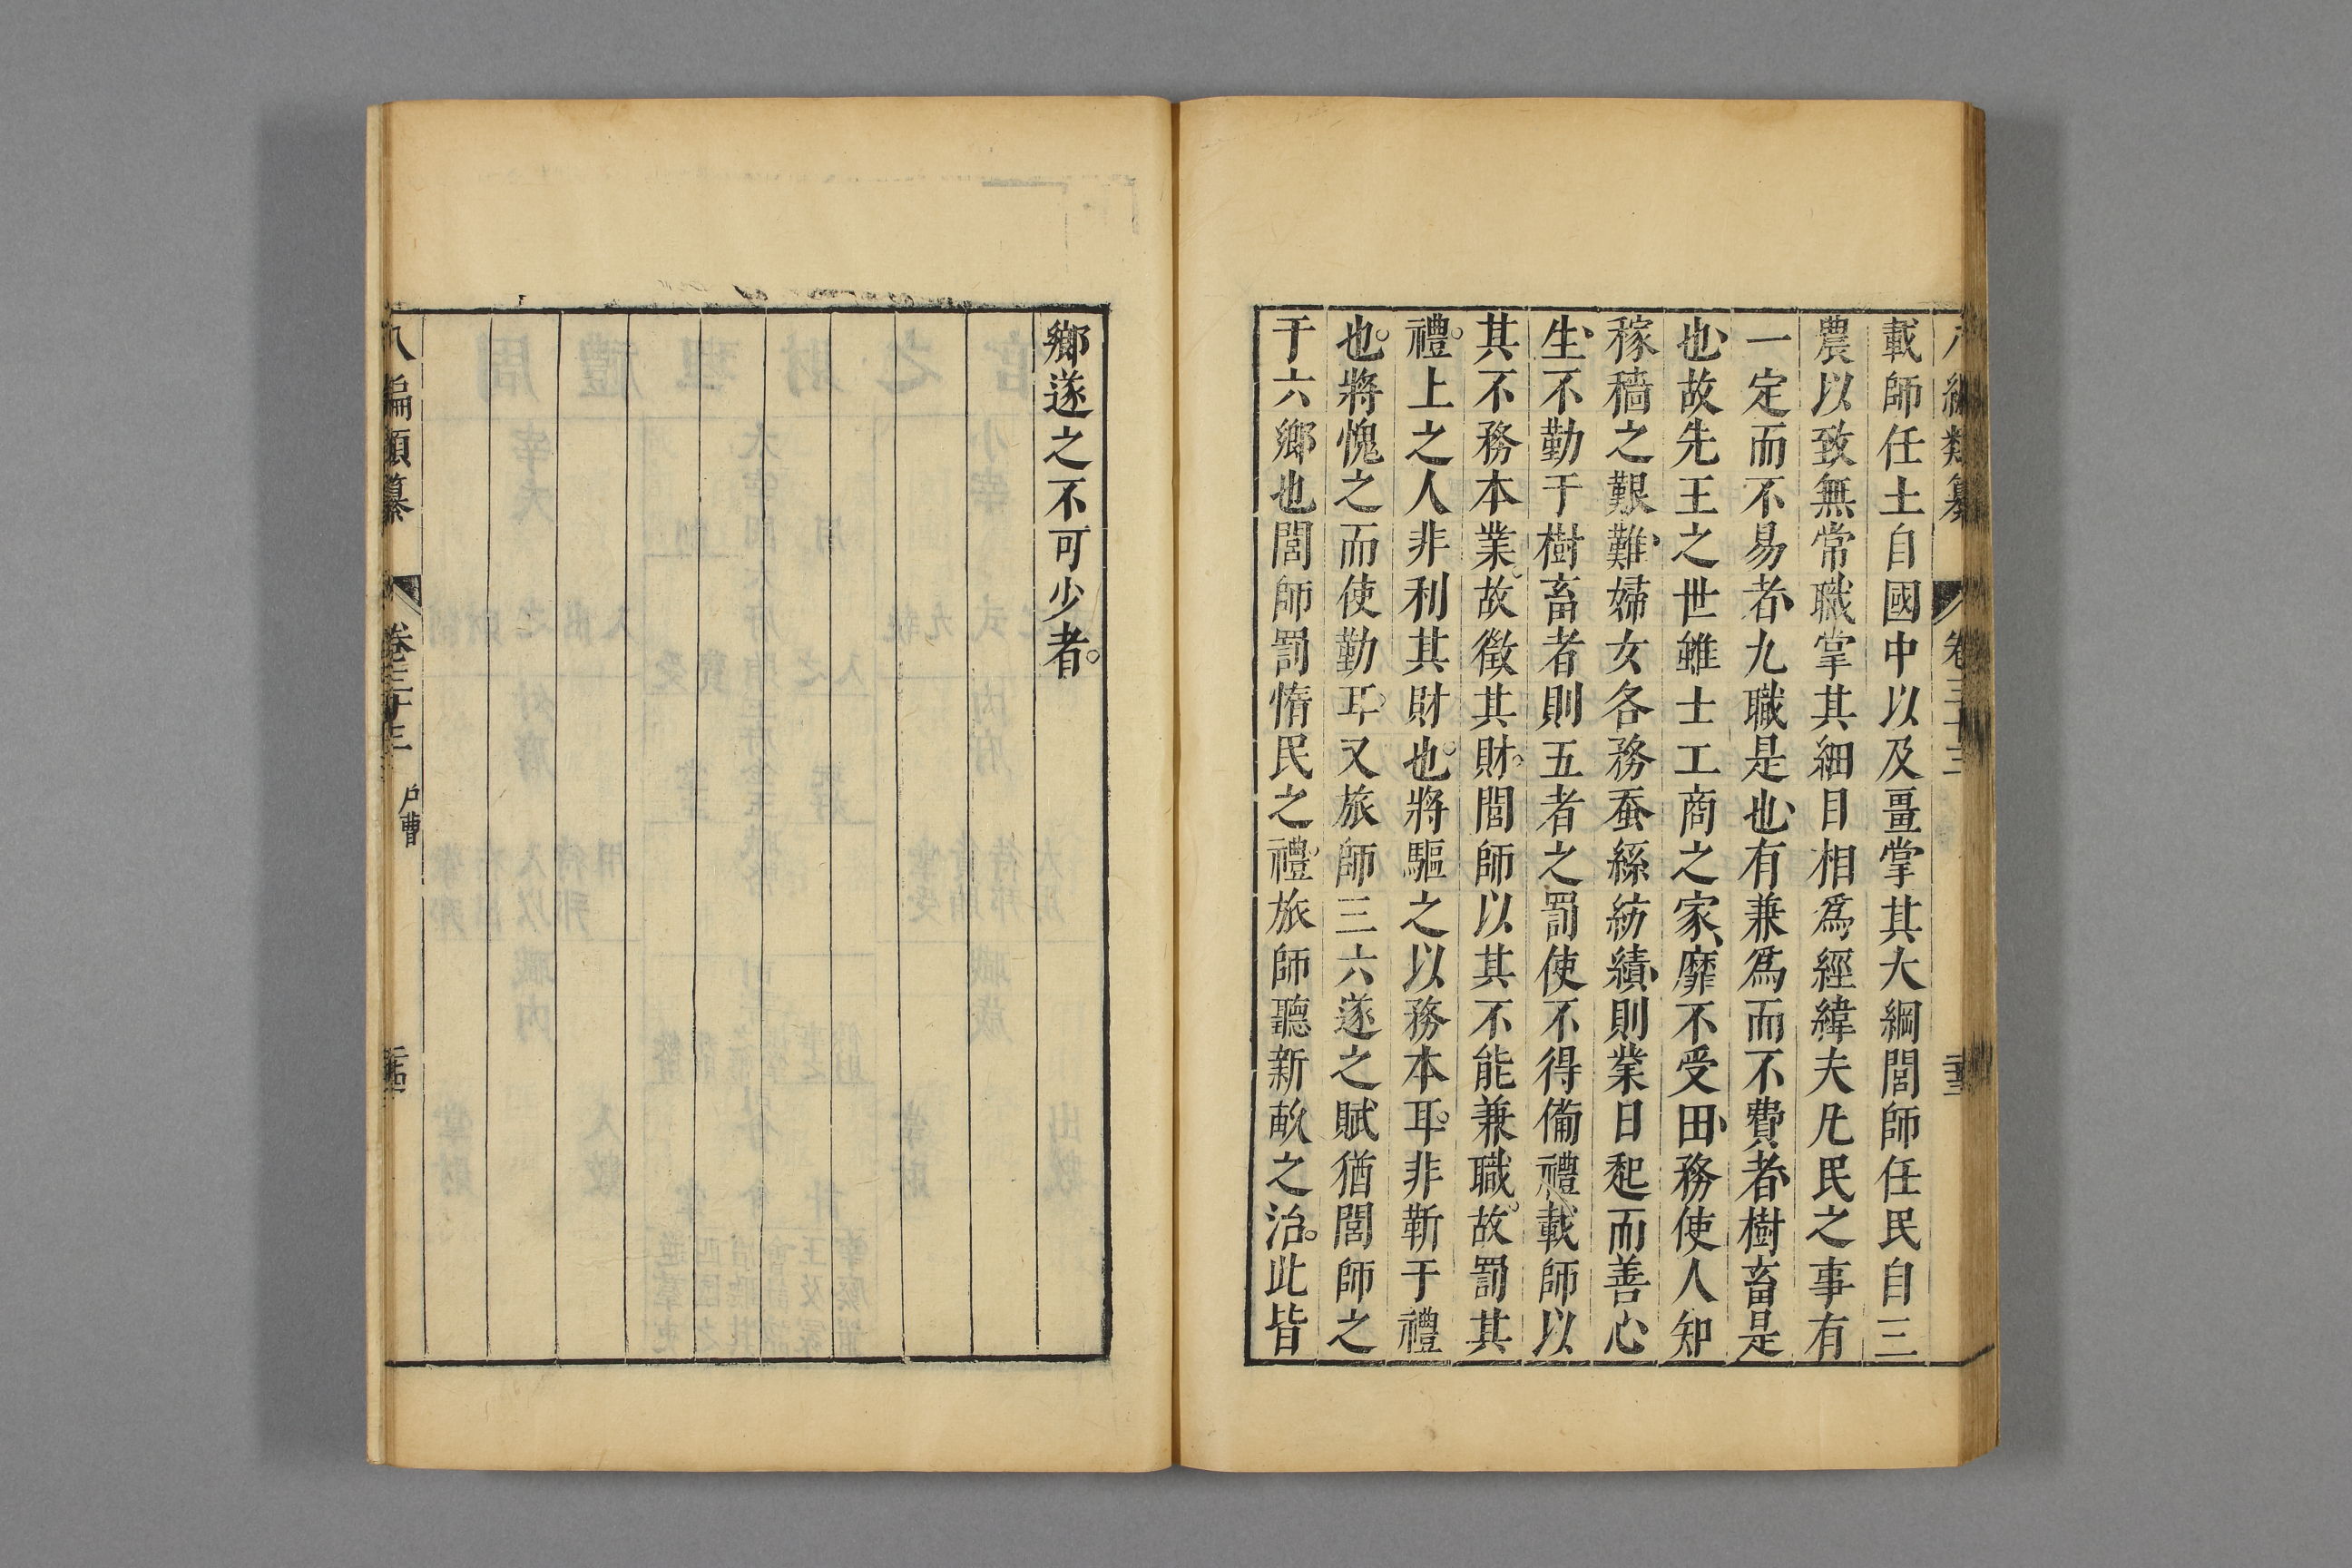 載師任土自國中以及畺掌其大綱閭師任民自三
農以致無常職掌其細目相爲經緯夫凡民之事有
一定而不易者九職是也有兼爲而不費者樹畜是
也故先王之世雖士工商之家靡不受田務使人知
稼穡之艱難婦女各務蚕絲紡績則業日起而善心
生不勤于樹畜者則五者之罰使不得備禮載師以
其不務本業故徵其財閭師以其不能兼職故罰其
禮上之人非利其財也將驅之以務本耳非靳于禮
也將愧之而使勤耳又旅師三六遂之賦猶閭師之
于六鄉也閭師罰惰民之禮旅師聽新畝之治此皆
鄉遂之不可少者
八編類纂 卷三十三 戶曹